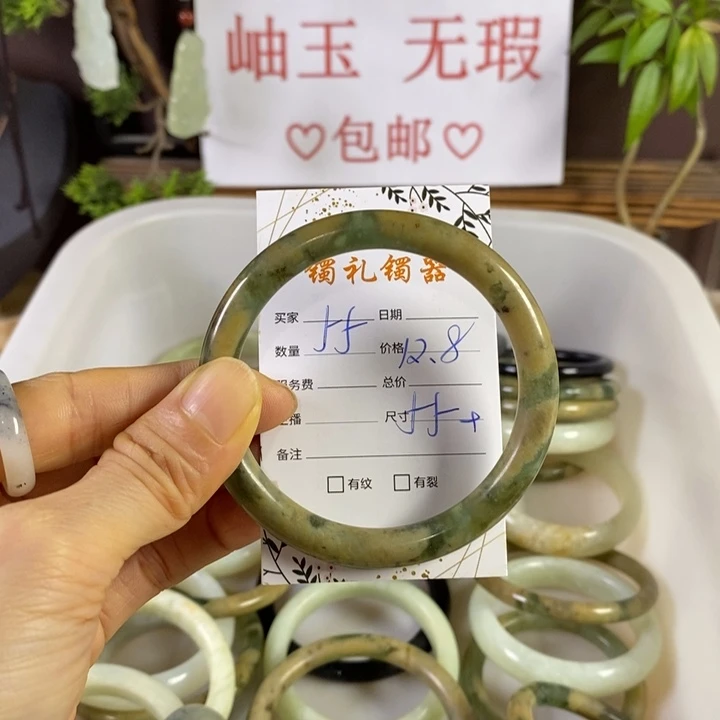 岫玉 无瑕
♡包邮♡
镯礼镯器
买家 日期
数量 价格 12.8
服务费 总价
主播 尺寸
备注
□ 有纹 □ 有裂